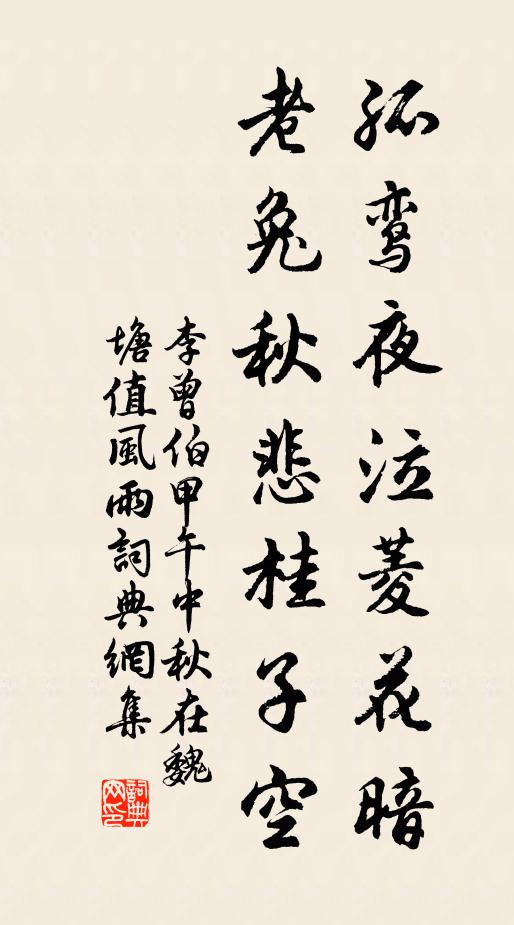 孤鸾夜泣菱花暗
老兔秋悲桂子空
李曾伯甲午中秋在魏
塘值風雨詞典網集
詞典网印